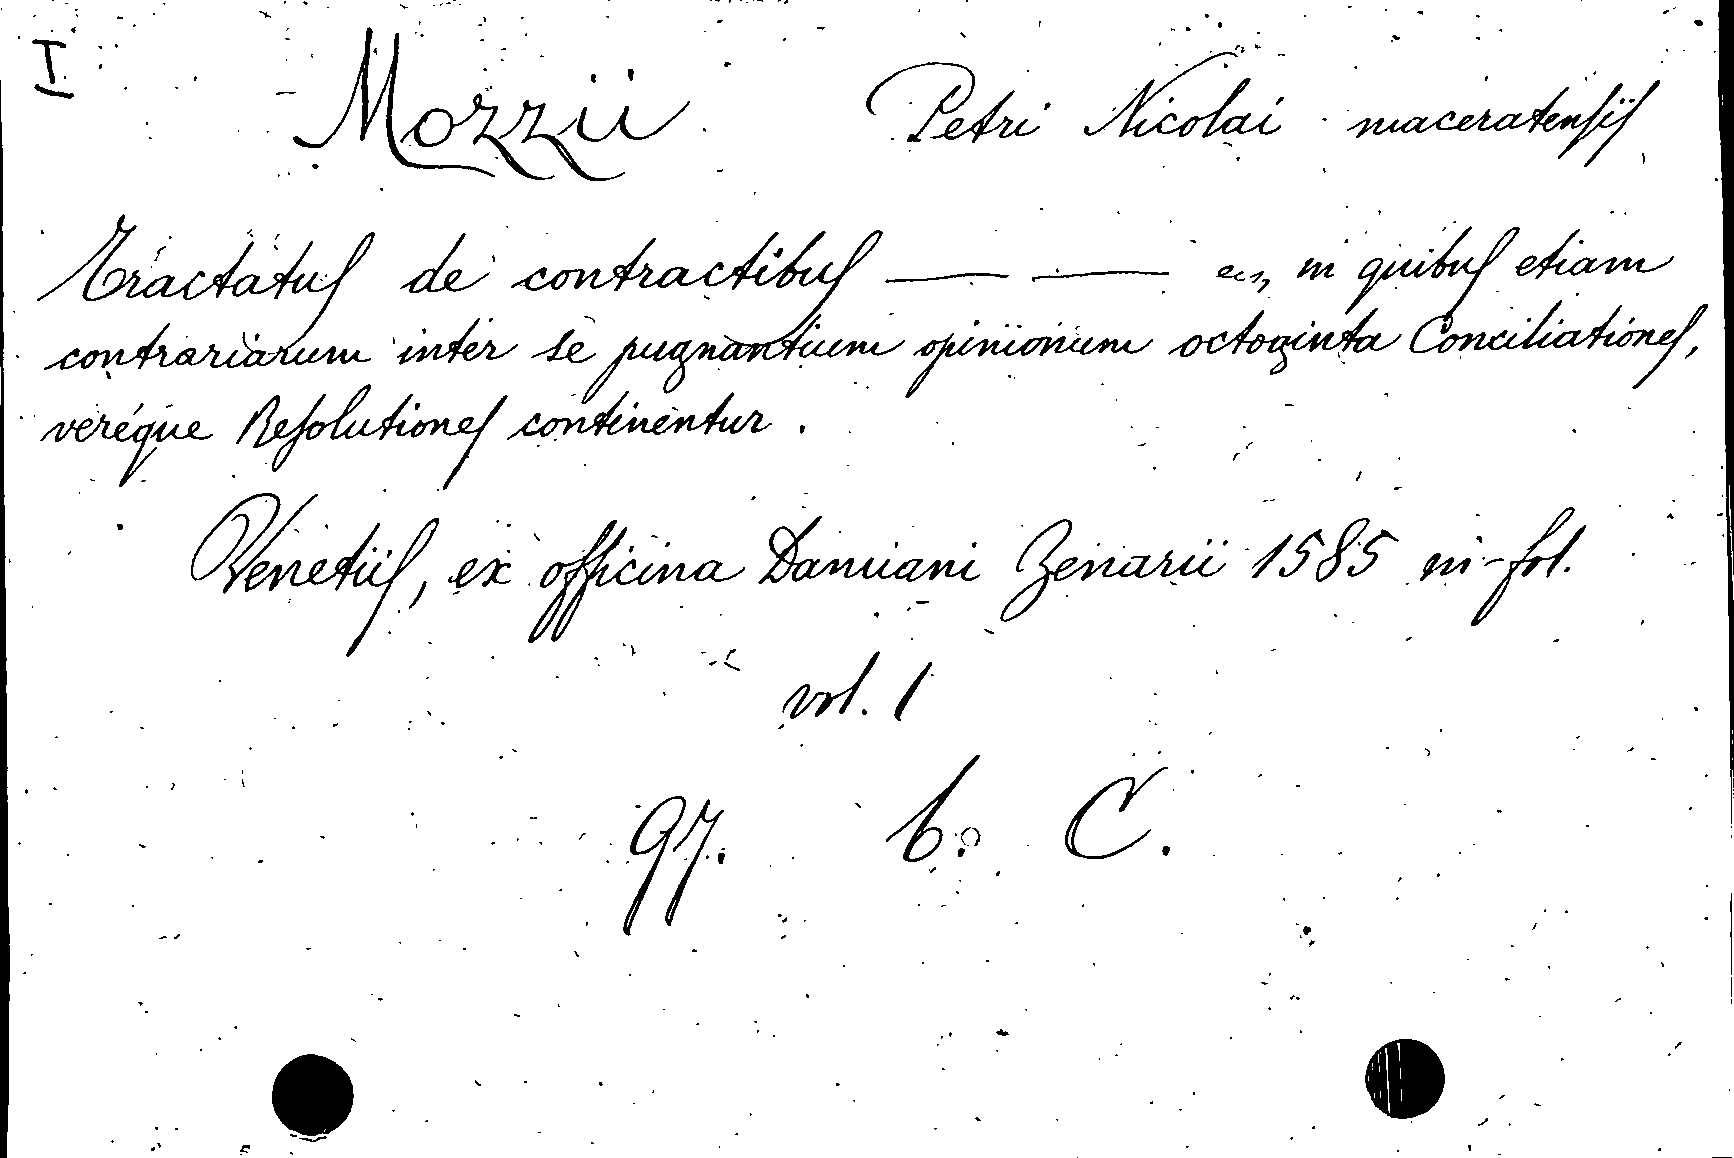 I
Mozzii Petri Nicolai maceratensis
Tractatus de contractibus —— —— in quibus etiam
contrariarum inter se pugnantium opinionum octoginta Conciliationes,
veréque Resolutiones continentur.
Venetiis, ex officina Damiani Zenarii 1585 in-fol.
vol. 1
97. b. C.